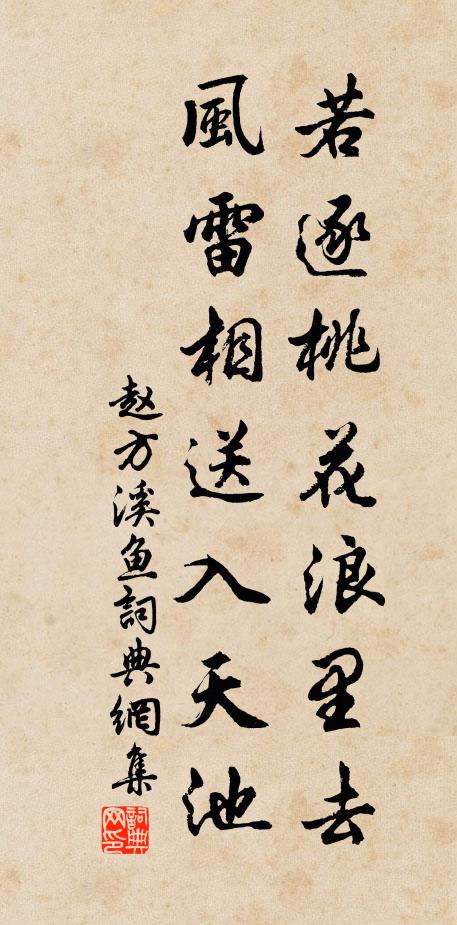 若逐桃花浪里去
風雷相送入天池
赵方溪鱼詞典網集
詞典网印